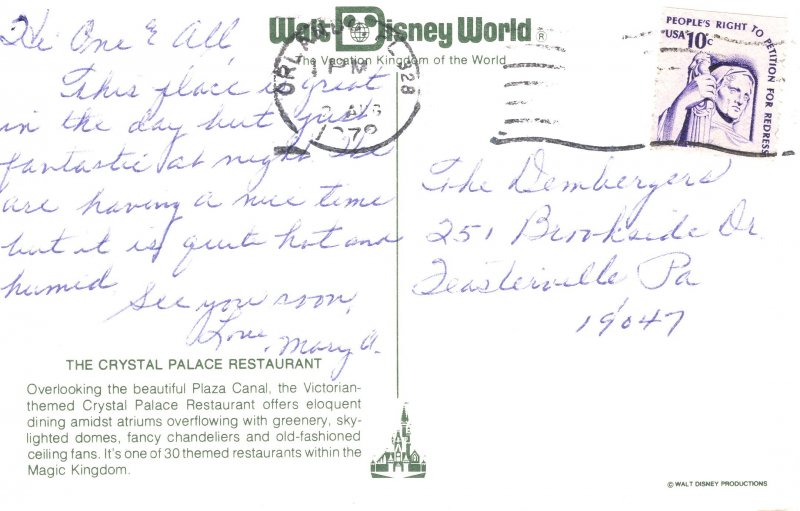 Walt Disney World ®
The Vacation Kingdom of the World
ORLANDO FL 328
1 PM
2 AUG
1979
PEOPLE'S RIGHT TO PETITION FOR REDRESS
USA 10c
Hi One & All
This place is great
in the day but just
fantastic at night. We
are having a nice time
but it is quite hot and
humid.
See you soon,
Love,
Mary A.
The Dembergers
251 Brookside Dr.
Feasterville Pa
19047
THE CRYSTAL PALACE RESTAURANT
Overlooking the beautiful Plaza Canal, the Victorian-
themed Crystal Palace Restaurant offers eloquent
dining amidst atriums overflowing with greenery, sky-
lighted domes, fancy chandeliers and old-fashioned
ceiling fans. It's one of 30 themed restaurants within the
Magic Kingdom.
© WALT DISNEY PRODUCTIONS